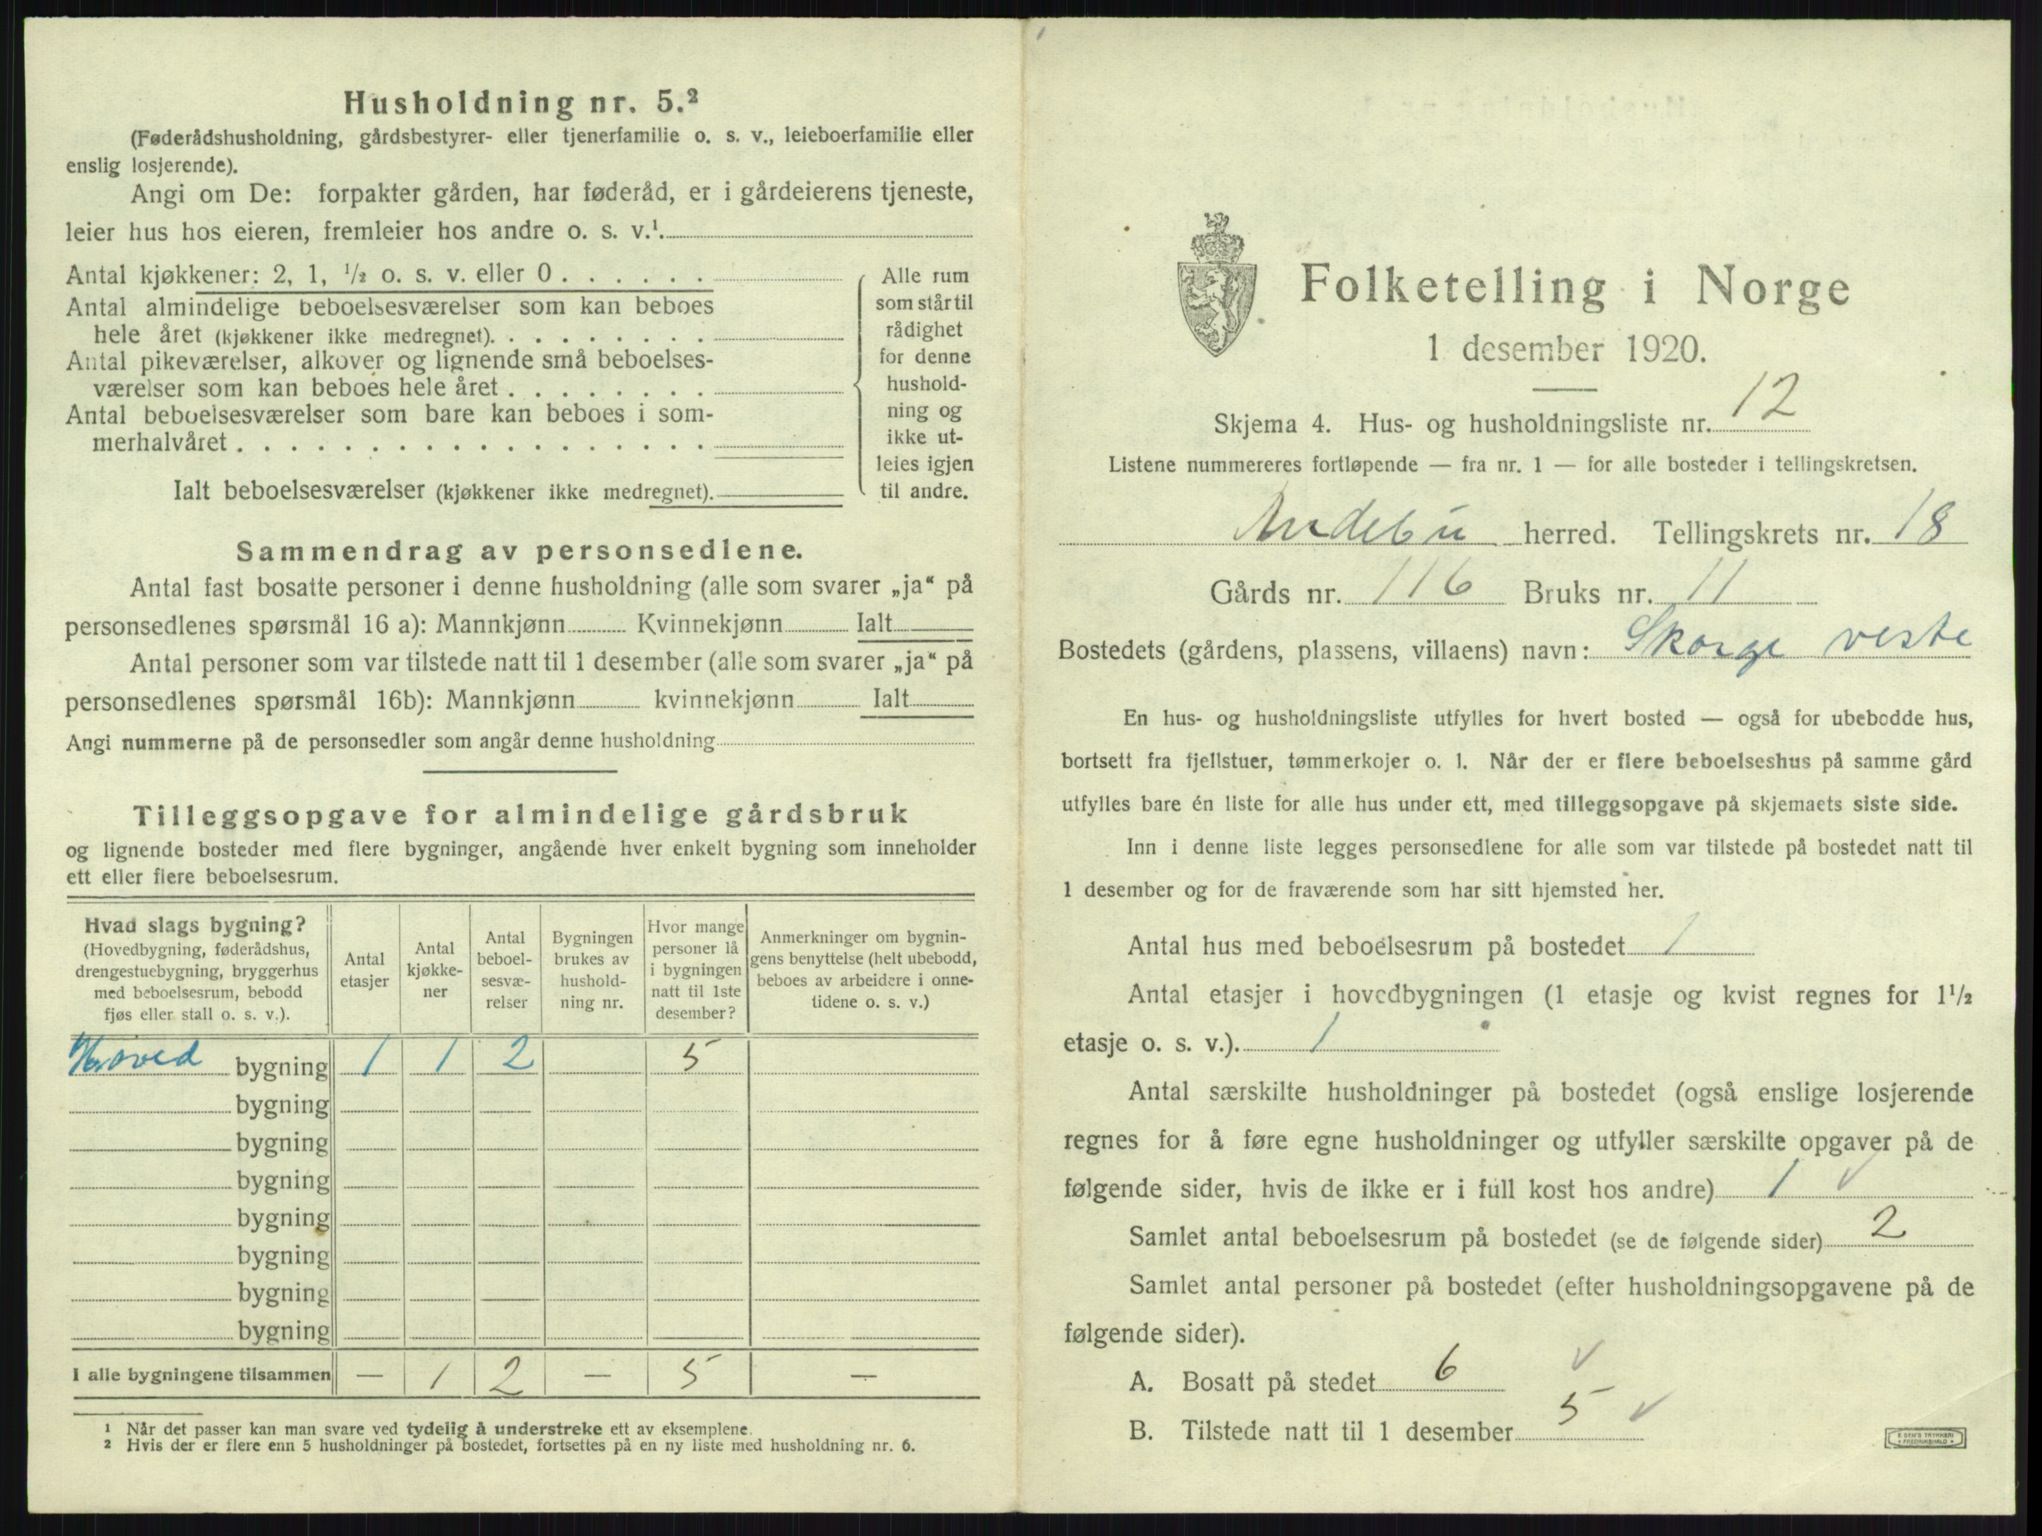 Husholdning nr. 5.²
(Føderådshusholdning, gårdsbestyrer- eller tjenerfamilie o. s. v., leieboerfamilie eller
enslig losjerende).
Angi om De: forpakter gården, har føderåd, er i gårdeierens tjeneste,
leier hus hos eieren, fremleier hos andre o. s. v.¹.
Antal kjøkkener: 2, 1, ¹/₂ o. s. v. eller 0 . . . . . .
Antal almindelige beboelsesværelser som kan beboes
hele året (kjøkkener ikke medregnet). . . . . . . . .
Antal pikeværelser, alkover og lignende små beboelses-
værelser som kan beboes hele året . . . . . . . .
Antal beboelsesværelser som bare kan beboes i som-
merhalvåret . . . . . . . . . . . . . . . . . .
Ialt beboelsesværelser (kjøkkener ikke medregnet).
Alle rum
som står til
rådighet
for denne
hushold-
ning og
ikke ut-
leies igjen
til andre.
Sammendrag av personsedlene.
Antal fast bosatte personer i denne husholdning (alle som svarer „ja“ på
personsedlenes spørsmål 16 a): Mannkjønn Kvinnekjønn Ialt
Antal personer som var tilstede natt til 1 desember (alle som svarer „ja“ på
personsedlenes spørsmål 16b): Mannkjønn kvinnekjønn Ialt
Angi nummerne på de personsedler som angår denne husholdning
Tilleggsopgave for almindelige gårdsbruk
og lignende bosteder med flere bygninger, angående hver enkelt bygning som inneholder
ett eller flere beboelsesrum.
Hvad slags bygning?
(Hovedbygning, føderådshus,
drengestuebygning, bryggerhus
med beboelsesrum, bebodd
fjøs eller stall o. s. v.).
Antal
etasjer
Antal
kjøkke-
ner
Antal
beboel-
sesvæ-
relser
Bygningen
brukes av
hushold-
ning nr.
Hvor mange
personer lå
i bygningen
natt til 1ste
desember?
Anmerkninger om bygnin-
gens benyttelse (helt ubebodd,
beboes av arbeidere i onne-
tidene o. s. v.)
Hoved bygning 1 1 2 5
bygning
bygning
bygning
bygning
bygning
bygning
bygning
I alle bygningene tilsammen — 1 2 — 5 —
¹ Når det passer kan man svare ved tydelig å understreke ett av eksemplene.
² Hvis der er flere enn 5 husholdninger på bostedet, fortsettes på en ny liste med husholdning nr. 6.
Folketelling i Norge
1 desember 1920.
Skjema 4. Hus- og husholdningsliste nr. 12
Listene nummereres fortløpende — fra nr. 1 — for alle bosteder i tellingskretsen.
Andebu herred. Tellingskrets nr. 18
Gårds nr. 116 Bruks nr. 11
Bostedets (gårdens, plassens, villaens) navn: Skorge veste
En hus- og husholdningsliste utfylles for hvert bosted — også for ubebodde hus,
bortsett fra fjellstuer, tømmerkojer o. l. Når der er flere beboelseshus på samme gård
utfylles bare én liste for alle hus under ett, med tilleggsopgave på skjemaets siste side.
Inn i denne liste legges personsedlene for alle som var tilstede på bostedet natt til
1 desember og for de fraværende som har sitt hjemsted her.
Antal hus med beboelsesrum på bostedet 1
Antal etasjer i hovedbygningen (1 etasje og kvist regnes for 1¹/₂
etasje o. s. v.). 1
Antal særskilte husholdninger på bostedet (også enslige losjerende
regnes for å føre egne husholdninger og utfyller særskilte opgaver på de
følgende sider, hvis de ikke er i full kost hos andre) 1 ✓
Samlet antal beboelsesrum på bostedet (se de følgende sider) 2
Samlet antal personer på bostedet (efter husholdningsopgavene på de
følgende sider).
A. Bosatt på stedet 6 ✓
B. Tilstede natt til 1 desember 5 ✓